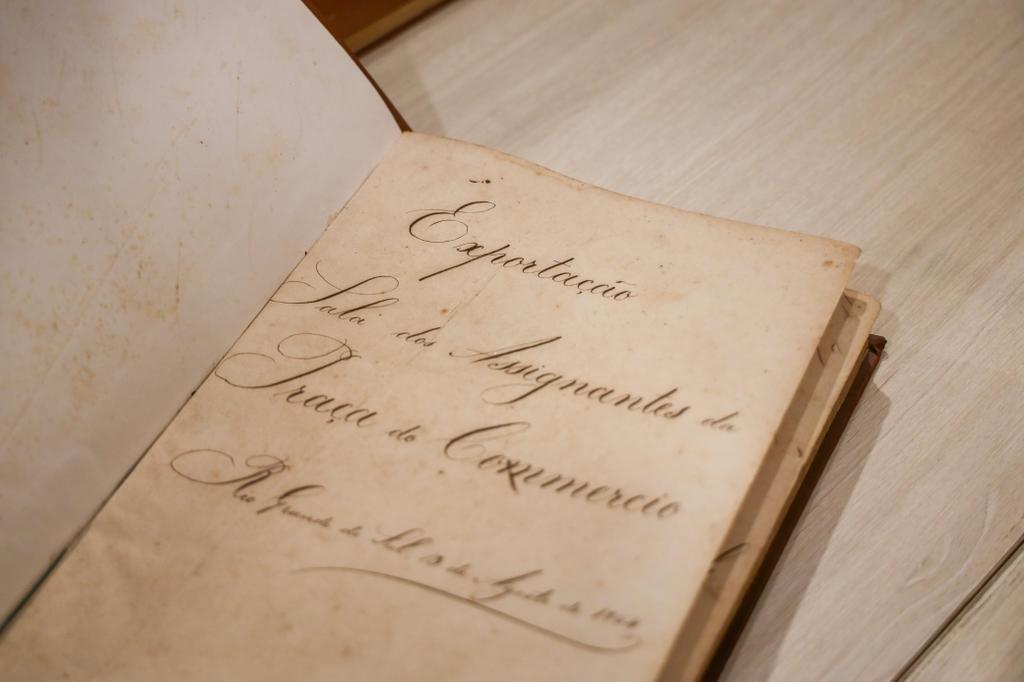 Exportação
Sala dos Assignantes da
Praça do Commercio
Rio Grande do Sul de Agosto de